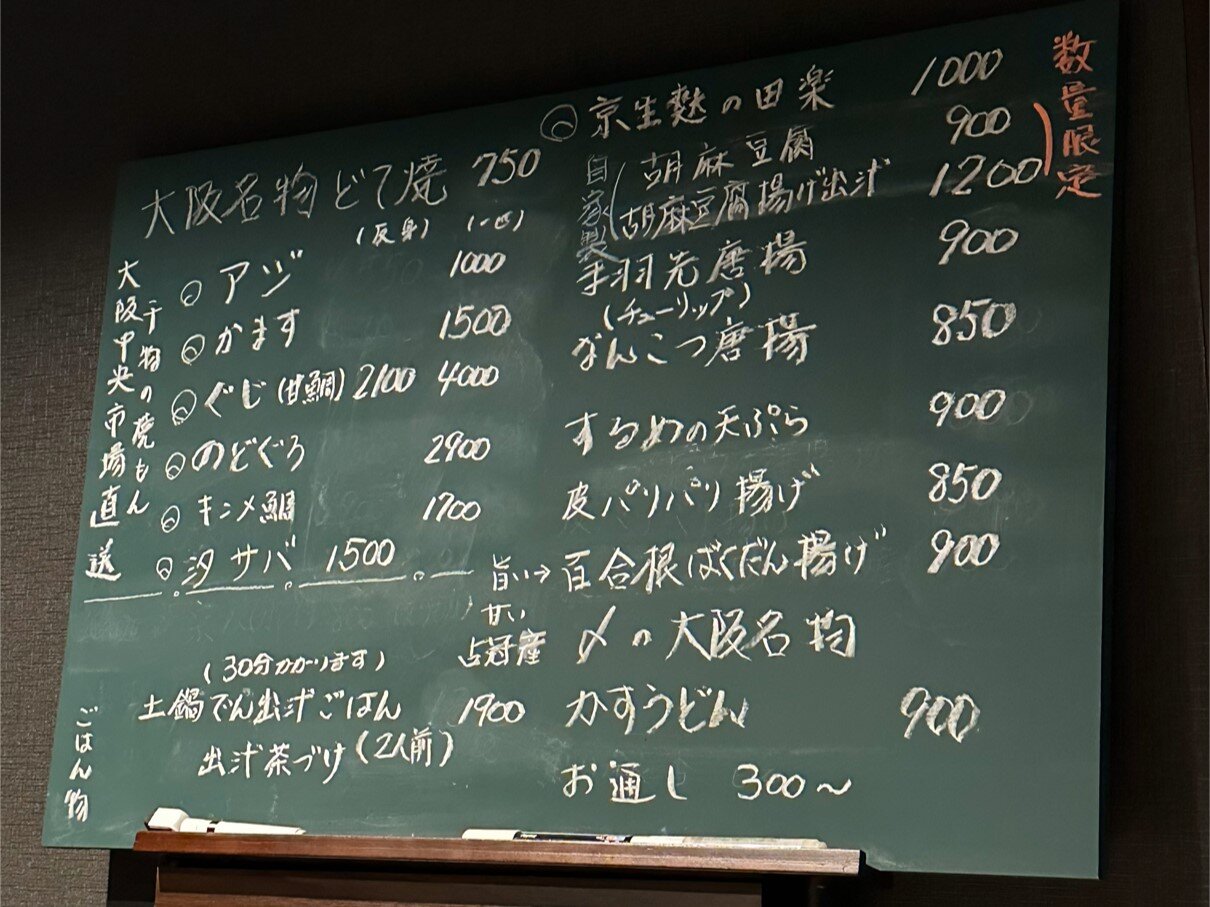 大阪名物どて焼 750
(反身) (一匹)
大阪中央市場直送
干物の焼もん
◎アジ 1000
◎かます 1500
◎ぐじ(甘鯛) 2100 4000
◎のどぐろ 2900
◎キンメ鯛 1700
◎汐サバ 1500
ごはん物
(30分かかります)
土鍋でん出汁ごはん 1900
出汁茶づけ(2人前)
数量限定
◎京生麩の田楽 1000
自家製
胡麻豆腐 900
胡麻豆腐揚げ出汁 1200
手羽先唐揚 900
(チューリップ)
なんこつ唐揚 850
するめの天ぷら 900
皮パリパリ揚げ 850
旨い→百合根ばくだん揚げ 900
甘い
占冠産
〆の大阪名物
かすうどん 900
お通し 300〜